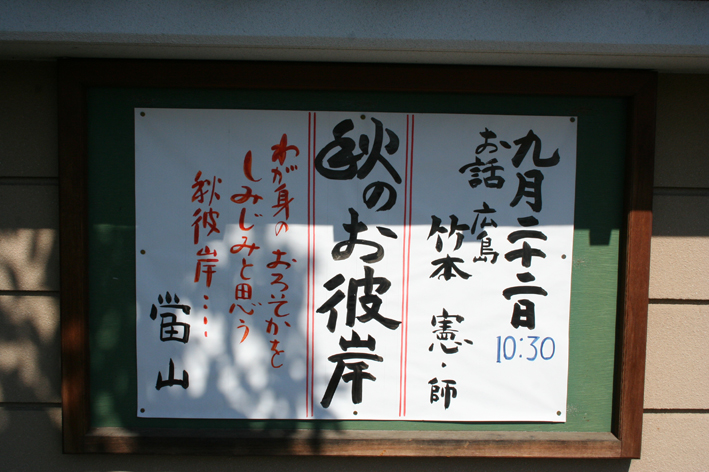 九月二十二日
10:30
お話 広島
竹本 憲・師
秋のお彼岸
わが身の おろそかを
しみじみと思う
秋彼岸…
當山